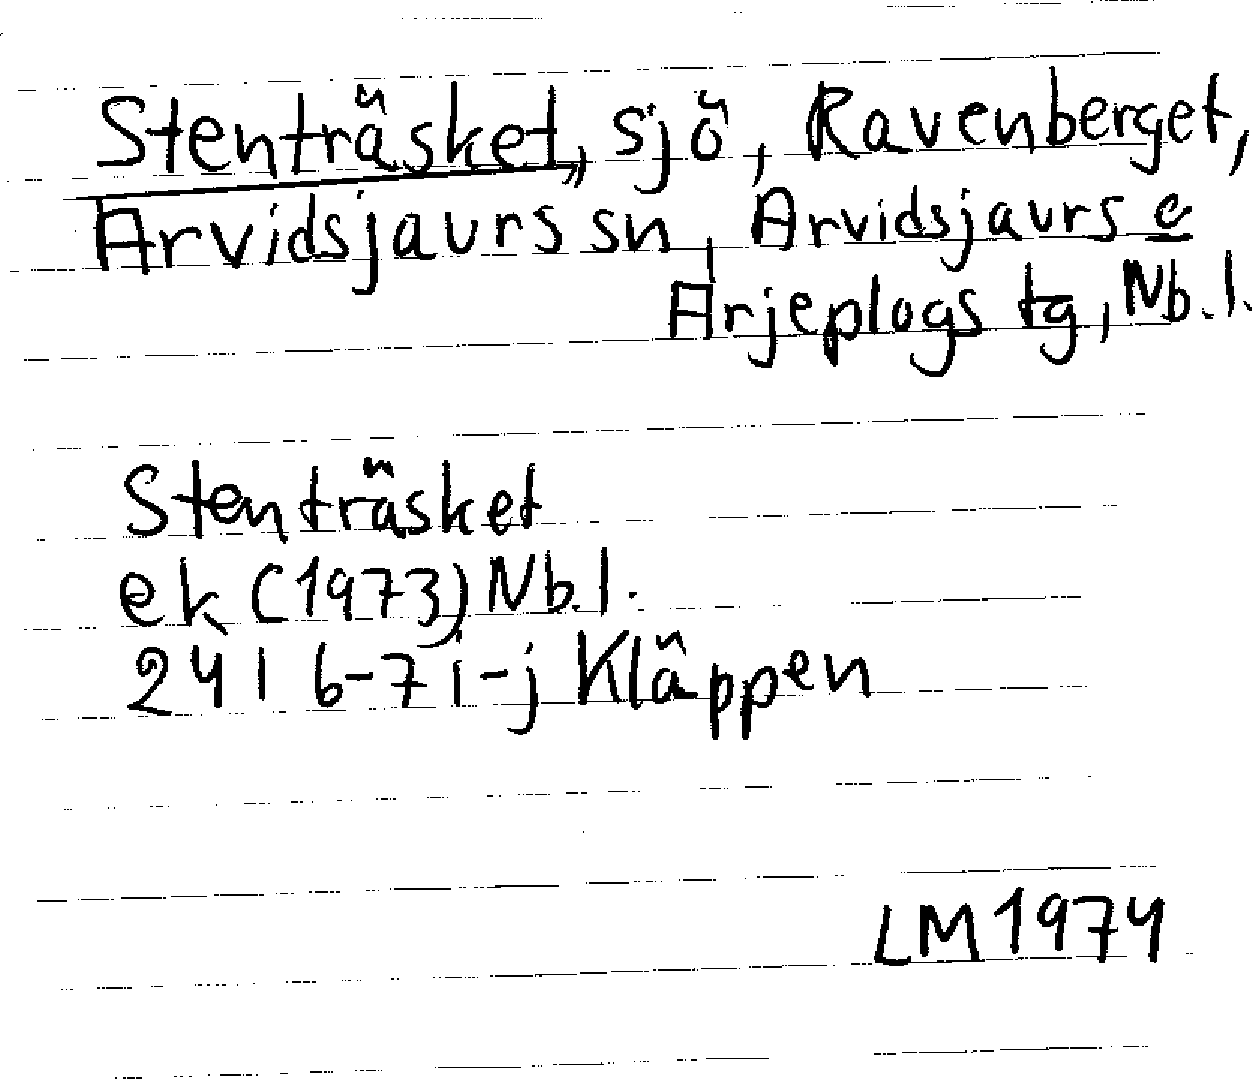 Stenträsket, sjö, Ravenberget,
Arvidsjaurs sn, Arvidsjaurs o
Arjeplogs tg, Nb.l.
Stenträsket
ek (1973) Nb.l.
24I 6-7i-j Kläppen
LM 1974